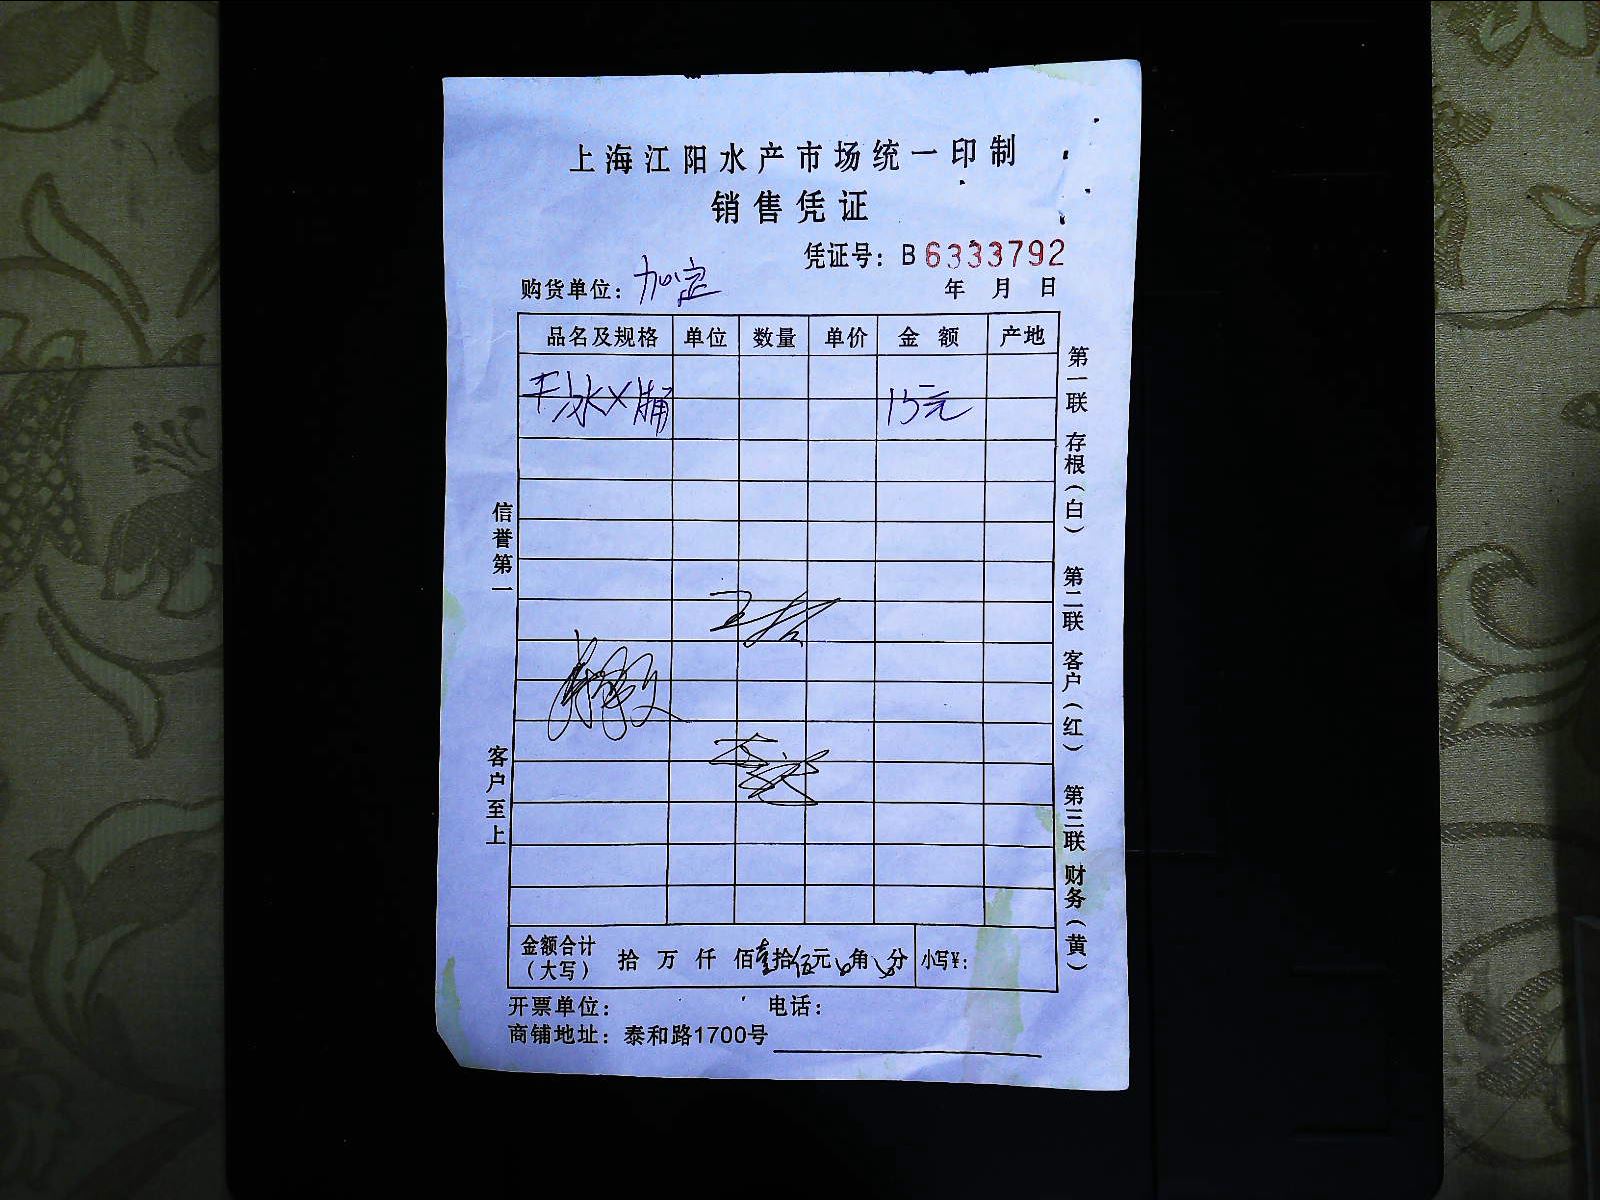 上海江阳水产市场统一印制
销售凭证
凭证号：B 6333792
购货单位：加定
年 月 日
品名及规格 单位 数量 单价 金额 产地
干冰X桶 15元
信誉第一
客户至上
第一联 存根（白） 第二联 客户（红） 第三联 财务（黄）
金额合计（大写） 拾 万 仟 佰壹拾伍元0角0分 小写¥：
开票单位： 电话：
商铺地址：泰和路1700号